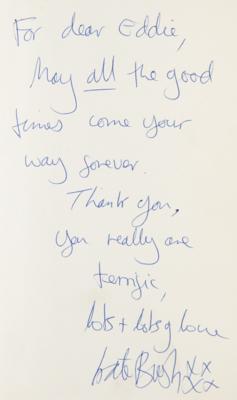 For dear Eddie,
May all the good
times come your
way forever.
Thank you,
You really are
terrific,
lots + lots of love
Kate Bush xx
xx